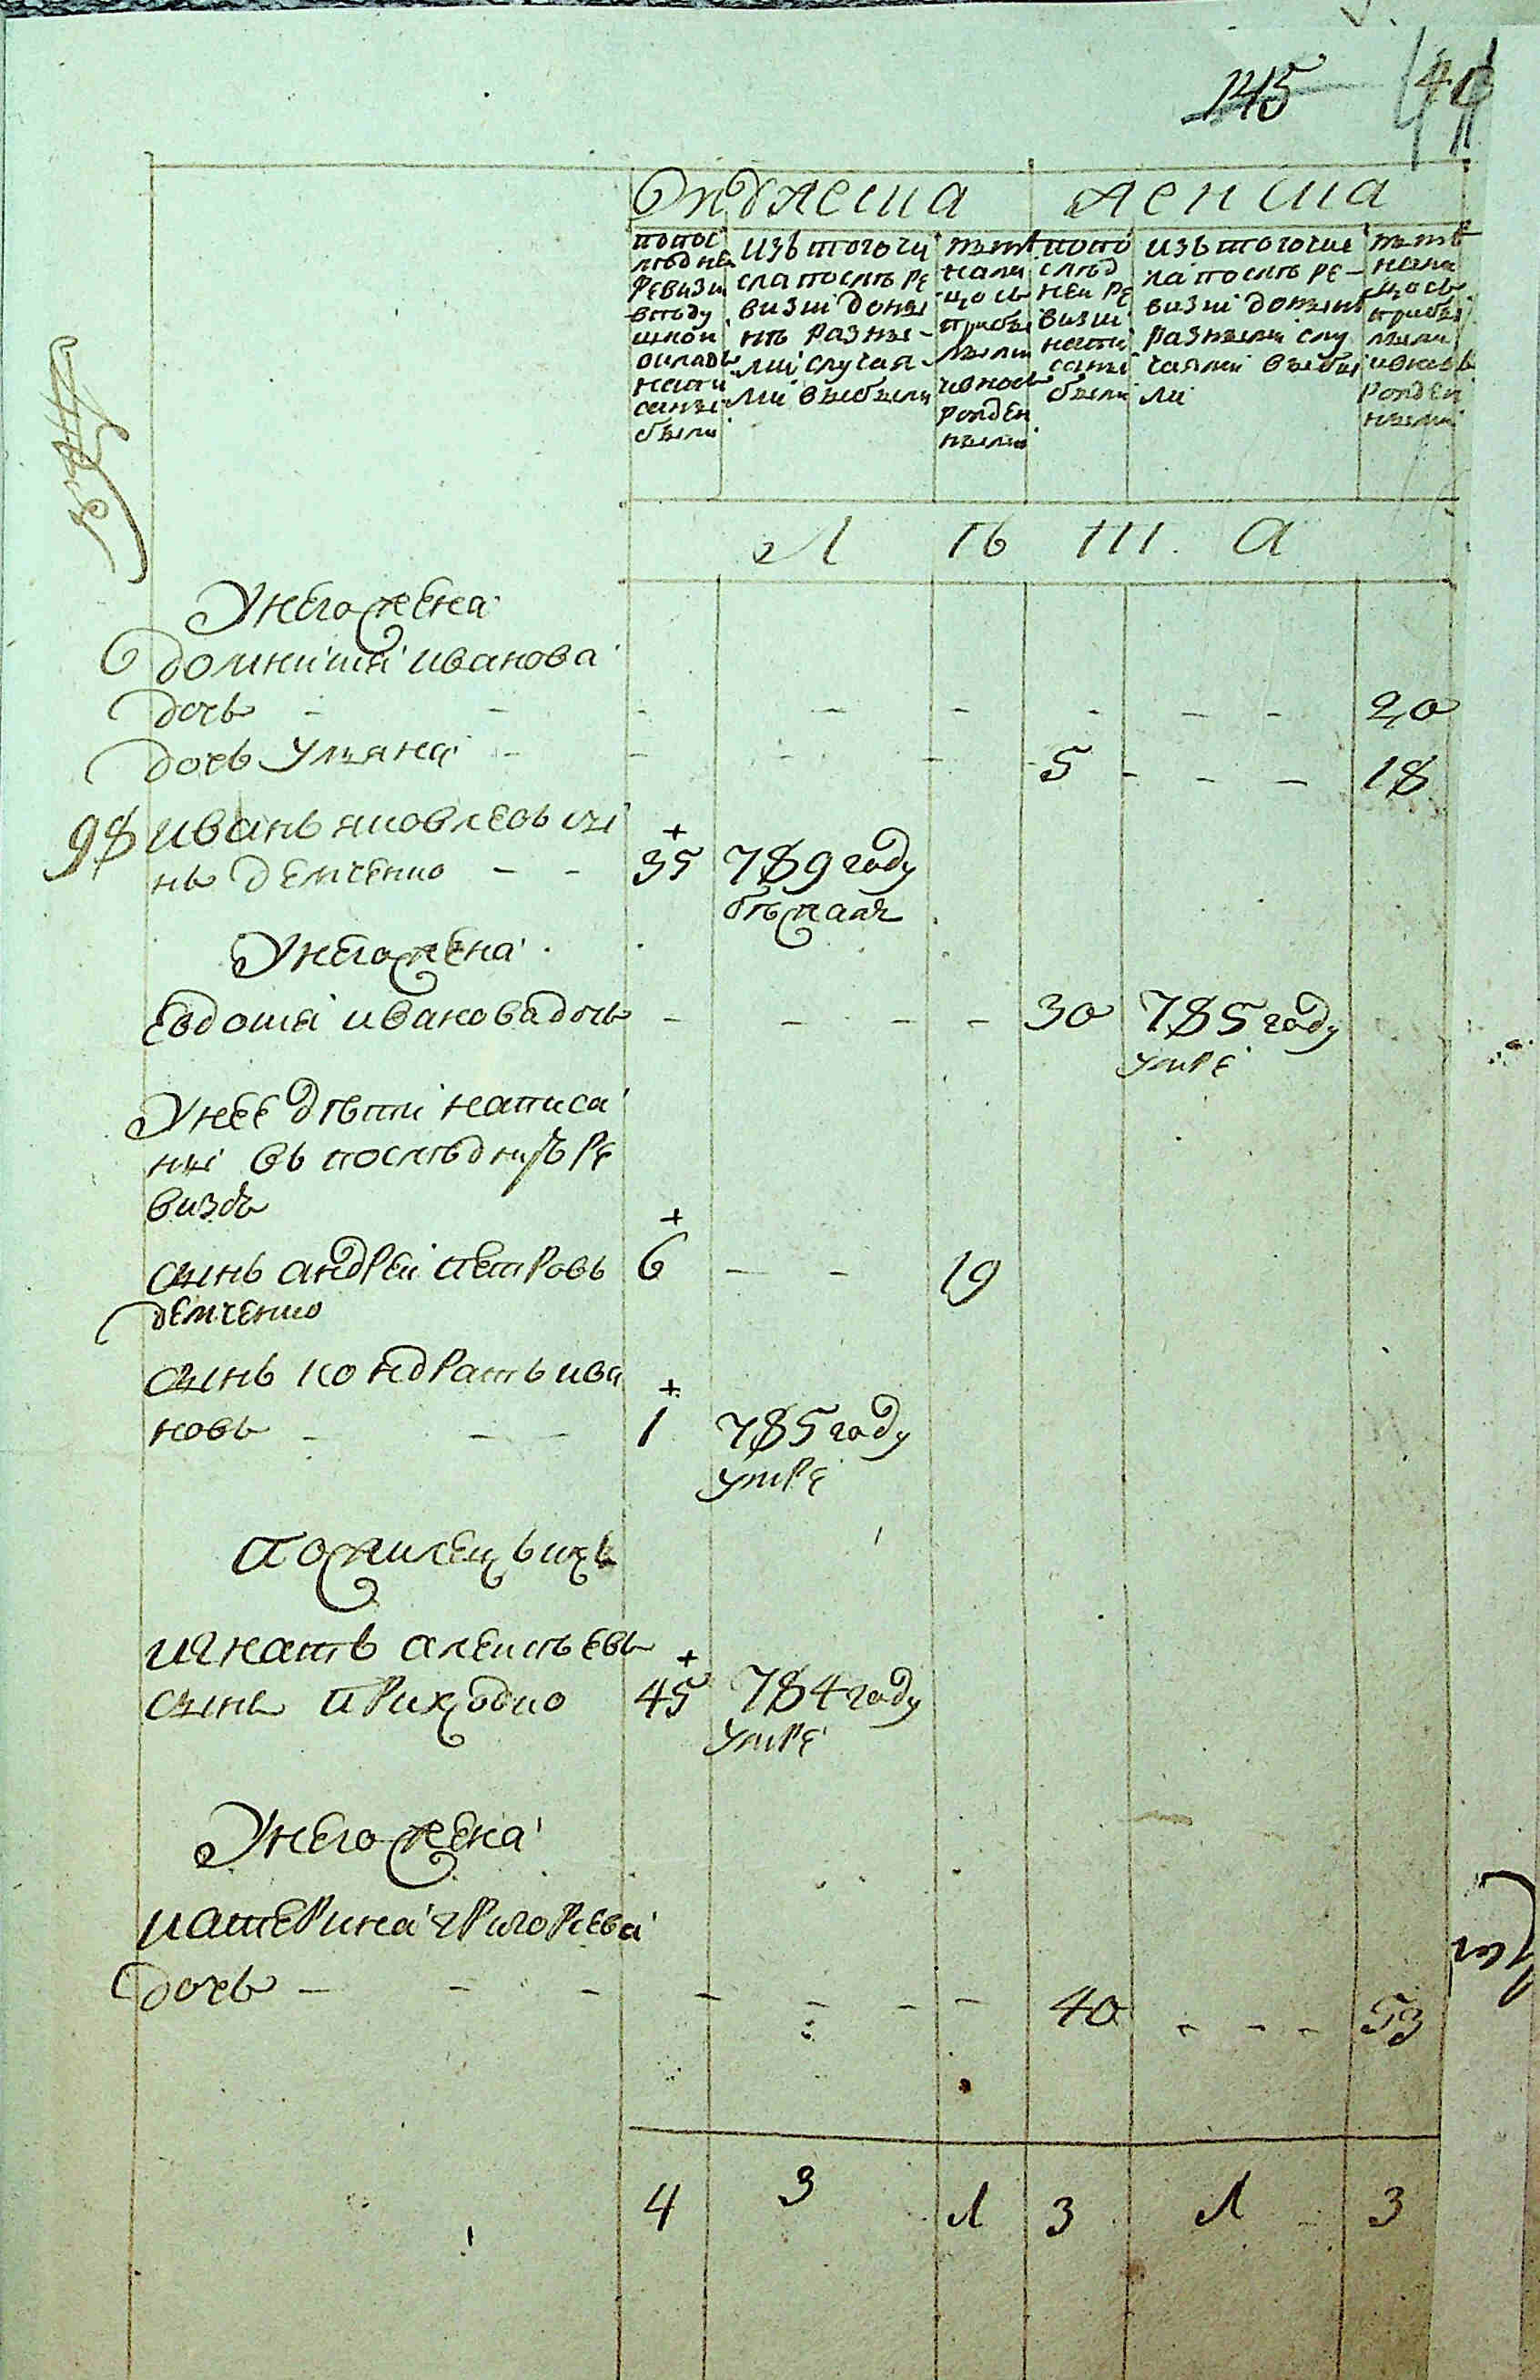 145
мужеска женска
попос
лѣдне
ревизи
вподу
шной
окладъ
напи
саны
были
изъ того чи
сла послѣ ре
визіи доны
нѣ разны-
ми случая-
ми выбыли
нынѣ
нали
цось
прибы
лыми
ивновь
рожден
ными
попо
слѣд
ней ре
визіи
напи
саны
были
изъ того чис
ла послѣ ре-
визіи донынѣ
разными слу
чаями выбы
ли
нынѣ
нали
цось
прибы
лыми
ивновь
рожден
ными
Л Ѣ Т А
У него жена
домникия иванова
дочь - - - - - - - - 20
дочь Уляна - - - - 5 - - - 18
98 иванъ яковлевъ сы
нъ демченко - - 35 789 году
бѣжалъ
У него жена
Евдокия иванова дочь - - - - 30 785 году
умре
У нее дѣти написа
ны въ последнуъ ре
визъ
сынъ андрей петровъ 6 - - 19
демченко
сынъ кондратъ ива
новъ - - - 1 785 году
умре
Пожилецъ ихъ
игнатъ алексѣевъ
сынъ приходко 45 784 году
умре
У него жена
катерина григорьева
дочь - - - - - - - 40 - - - 53
4 3 1 3 1 3